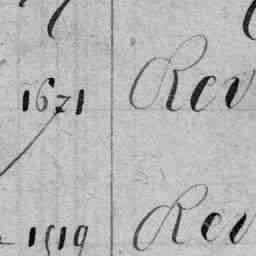 1671 Rev
1519 Rev